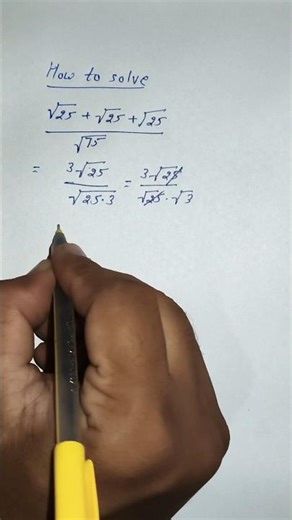 How to solve
√25 + √25 + √25
√75
= 3√25 / √25·3 = 3√25 / √25·√3